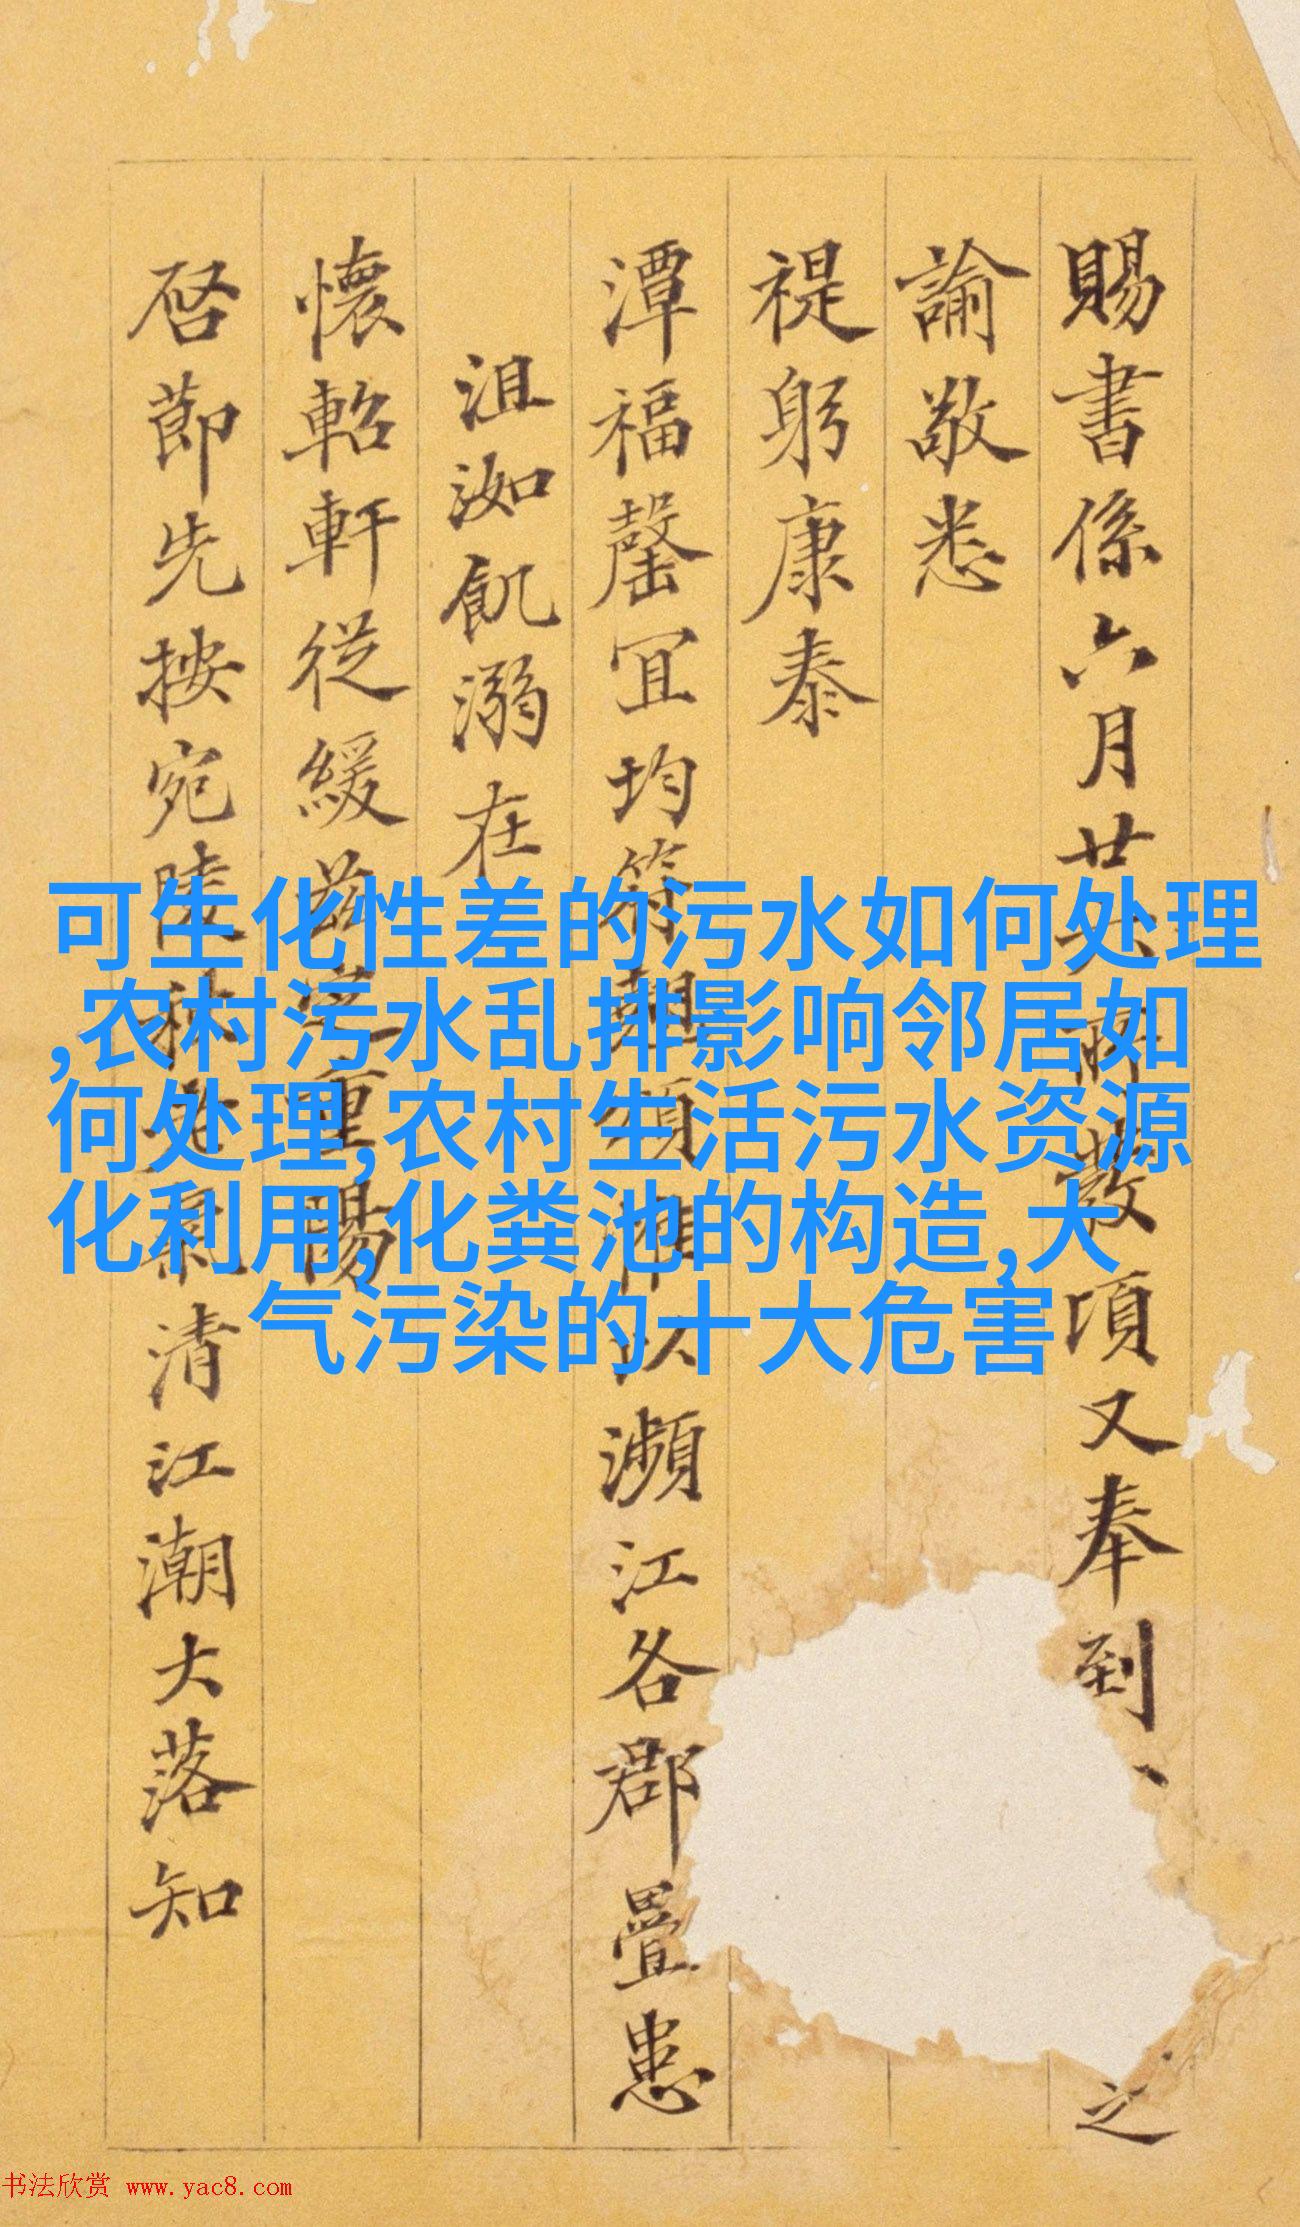 賜書係六月廿
項又奉到
之
諭敬悉
禔躬康泰
潭福罄宜均
瀕江各郡疊患
沮洳飢溺在
懷軺軒從緩
啓節先按宛陵
清江潮大落知
可生化性差的污水如何处理
,农村污水乱排影响邻居如
何处理,农村生活污水资源
化利用,化粪池的构造,大
气污染的十大危害
书法欣赏 www.yac8.com